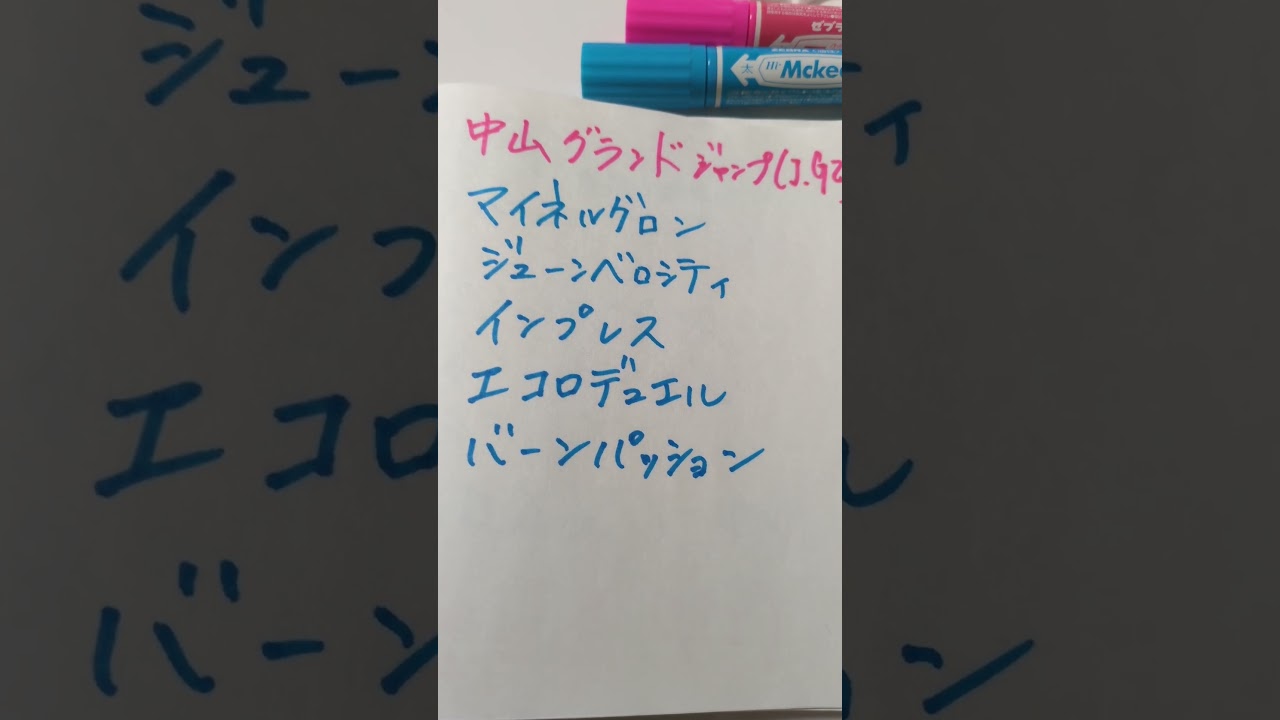 ゼブラ
太 Hi-Mckee
中山グランドジャンプ(J.G
マイネルグロン
ジューンベロシティ
インプレス
エコロデュエル
バーンパッション